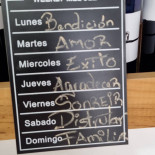 Lunes Bendición
Martes AMOR
Miercoles Exito
Jueves Agradecer
Viernes SONREIR
Sabado Disfrutar
Domingo Familia